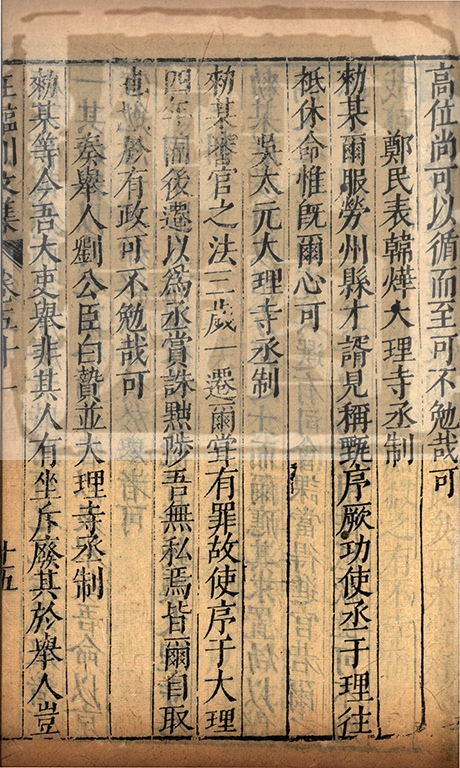 高位尚可以循而至可不勉哉可
鄭民表韓燁大理寺丞制
勑某爾服勞州縣才諝見稱甄序厥功使丞于理往
祗休命惟旣爾心可
吳太元大理寺丞制
勑某審官之法三歲一遷爾甞有罪故使序于大理
四年而後遷以爲丞賞誅黜陟吾無私焉皆爾自取
也於有政可不勉哉可
一其奏舉人劉公臣白贄並大理寺丞制
勑某等今吾大吏舉非其人有坐斥廢其於舉人豈
王臨川文集 卷五十一
十五